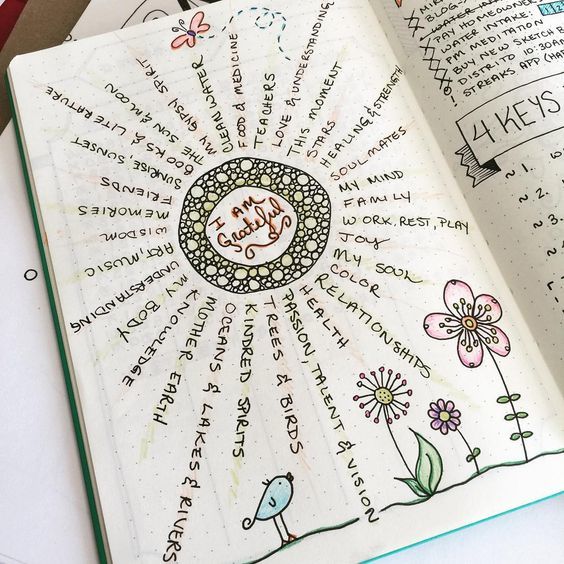 I AM
Grateful
CLEAN WATER
FOOD & MEDICINE
TEACHERS
LOVE & UNDERSTANDING
THIS MOMENT
STARS
HEALING & STRENGTH
SOULMATES
MY MIND
FAMILY
WORK, REST, PLAY
JOY
MY SOUL
COLOR
RELATIONSHIPS
HEALTH
PASSION, TALENT & VISION
TREES & BIRDS
KINDRED SPIRITS
OCEANS & LAKES & RIVERS
MOTHER EARTH
KNOWLEDGE
MY BODY
UNDERSTANDING
ART, MUSIC
WISDOM
MEMORIES
FRIENDS
SUNRISE, SUNSET
THE SUN & MOON
BOOKS & LITERATURE
MY GYPSY SPIRIT
BLOG
PAY HOMEOWNE
WATER INTAKE:
PM MEDITATION
BUY NEW SKETCH B
DISTRITO 10:30A
! STREAKS APP (HA
4 KEYS
~ 1. W
~ 2.
~ 3.
~ 4